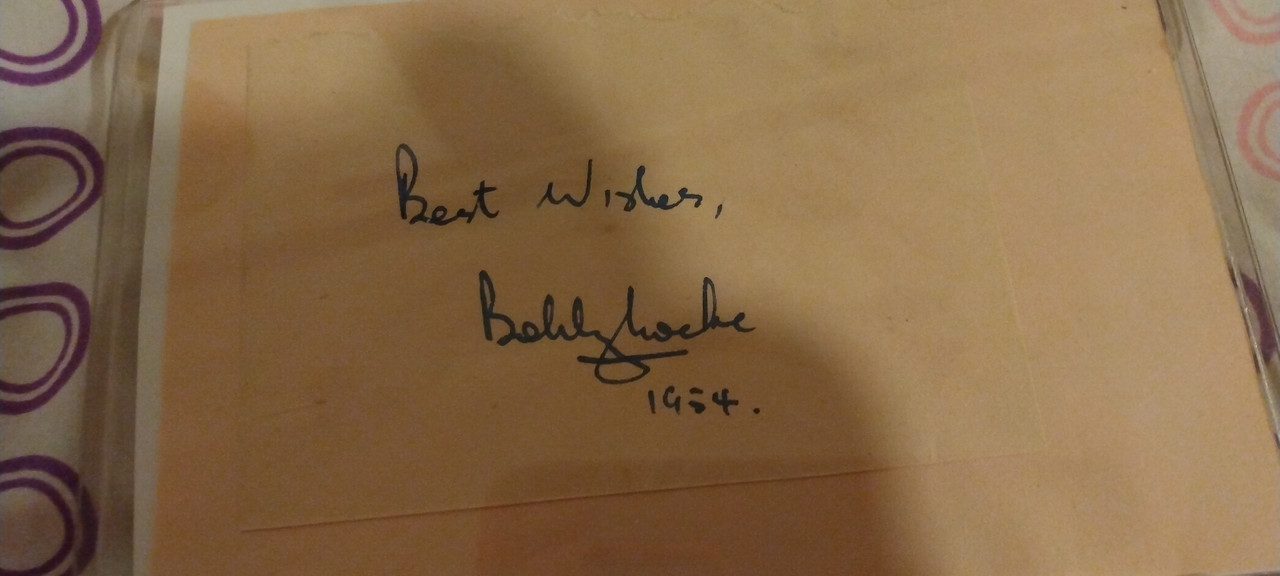 Best Wishes,
Bobby Locke
1954.